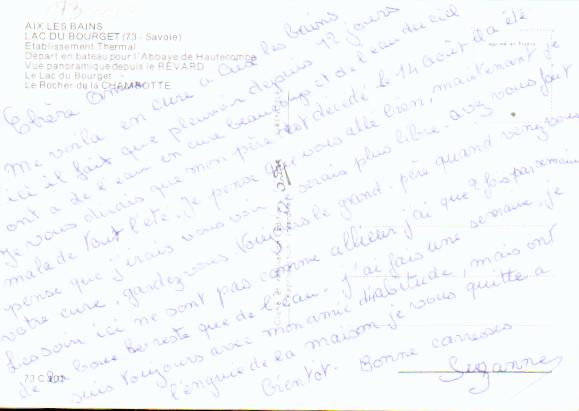 73
AIX LES BAINS
LAC DU BOURGET (73 - Savoie)
Etablissement Thermal
Départ en bateau pour l'Abbaye de Hautecombe
Vue panoramique depuis le REVARD
Le Lac du Bourget
Le Rocher de la CHAMBOTTE
Chère amie
Me voila en cure a aix les bains
ici il fait que pleuvoir depuis 12 jours
ont a de l'eau en cure beaucoup et de l'eau du ciel
Je vous dirais que mon père est décédé le 14 août il a été
malade tout l'été. Je pense que vous alle bien, maintenant je
pense que j'irais vous voir je serais plus libre. avez vous fait
votre cure, gardez vous toujours le grand-père quand venez vous
Les soin ici ne sont pas comme allieur j'ai que 2 fois par semaine
de la boue le reste que de l'eau. j'ai fais une semaine. je
suis toujours avec mon amie d'abitude, mais ont
l'enguie de la maison je vous quitte a
bientot. Bonne caresses
Suzanne
73 C 101